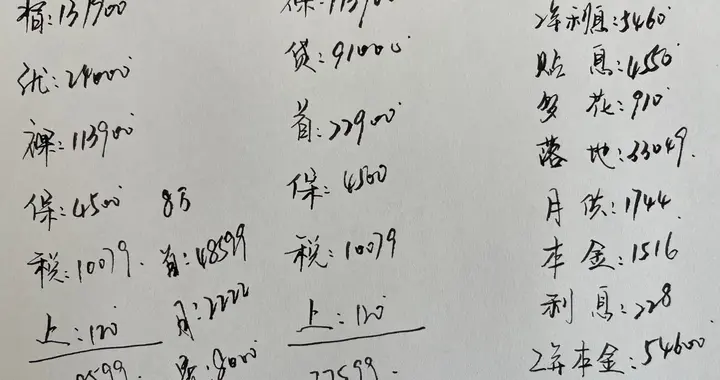 指:137900
优:24000
裸:113900
保:4500 8万
税:10079. 首:48599
上:120 月:2222
8599. 8000
保:113900
贷:91000
首:22900
保:4500
税:10079
上:120
37599.
2年利息:5460
贴息:4550
多花:910
落地:33049.
月供:1744.
本金:1516
利息:228
2年本金:54600